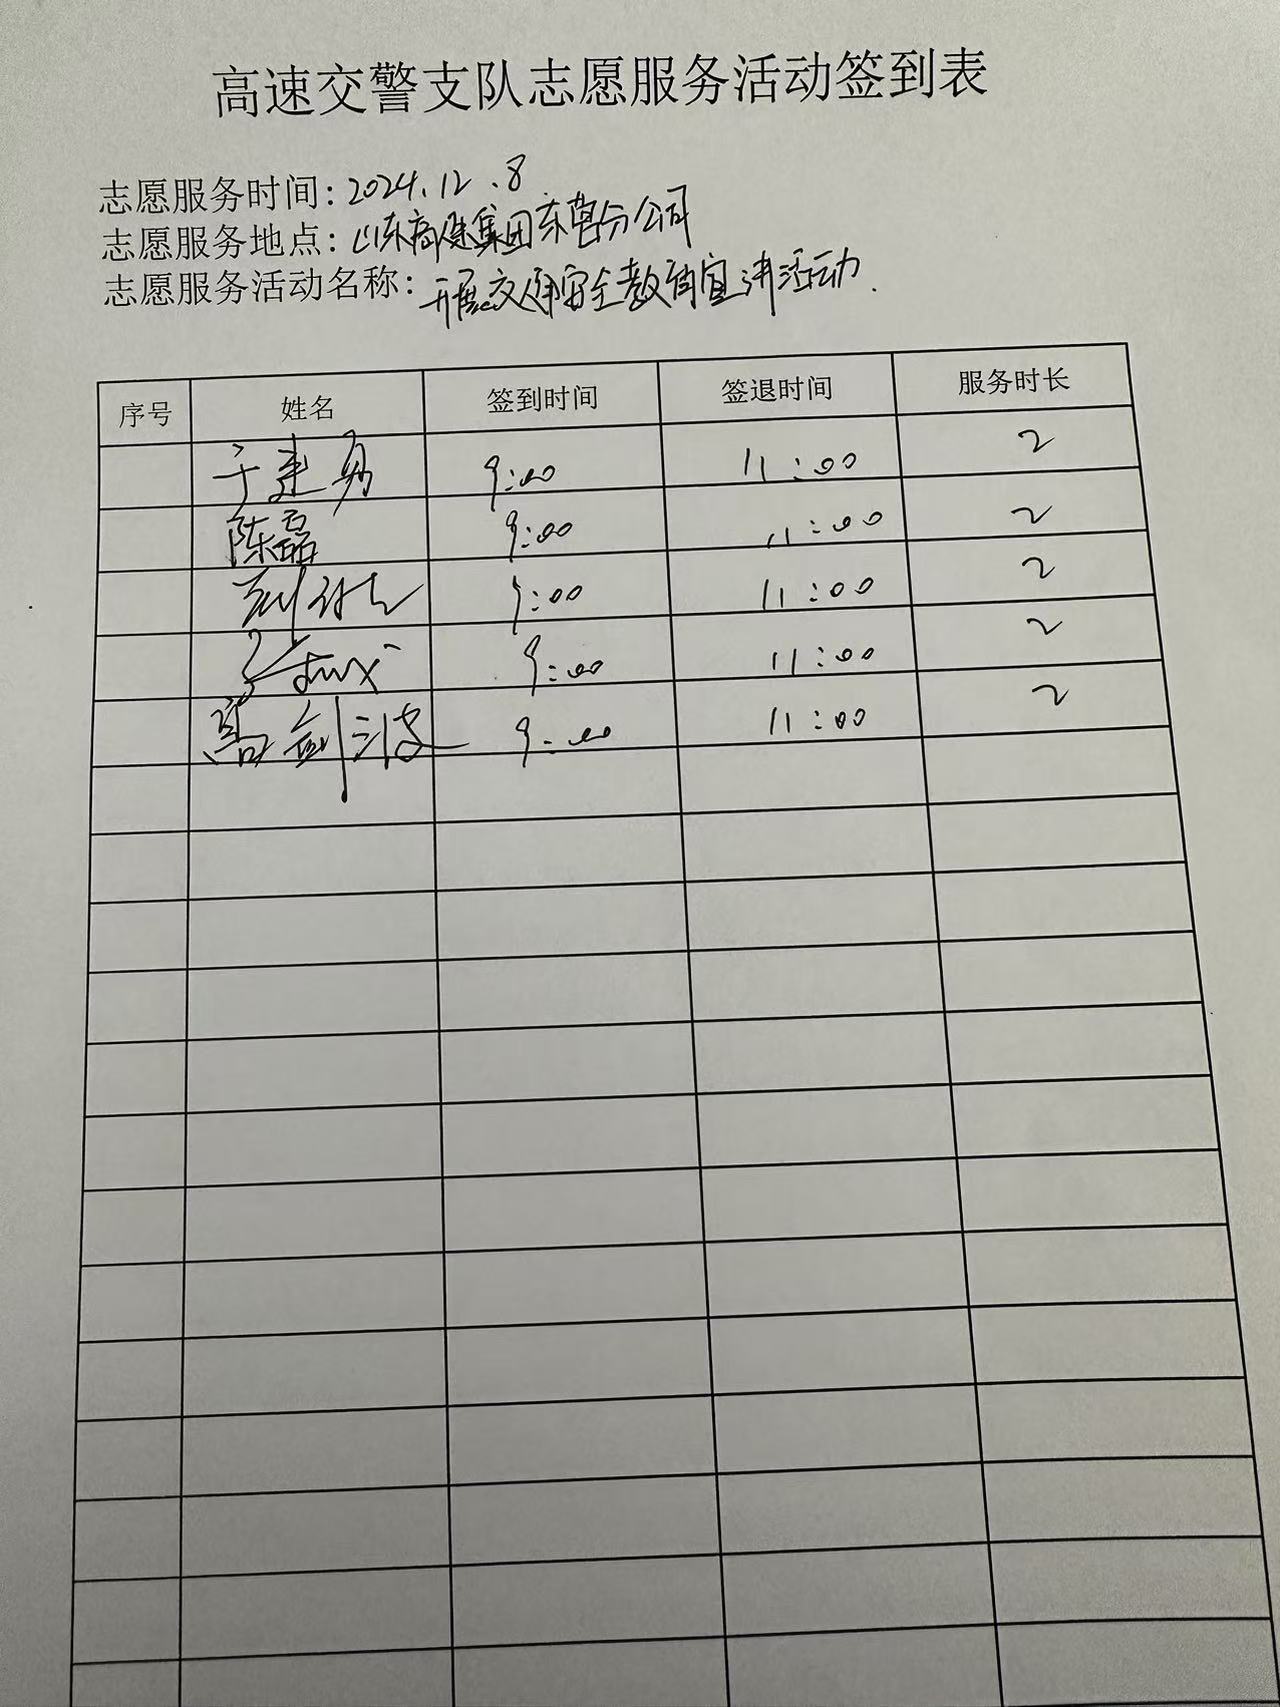 高速交警支队志愿服务活动签到表
志愿服务时间：2024.12.8
志愿服务地点：山东高速集团东营分公司
志愿服务活动名称：开展交通安全教育宣讲活动.
序号 姓名 签到时间 签退时间 服务时长
于建勇 9:00 11:00 2
陈磊 9:00 11:00 2
9:00 11:00 2
9:00 11:00 2
高剑波 9:00 11:00 2